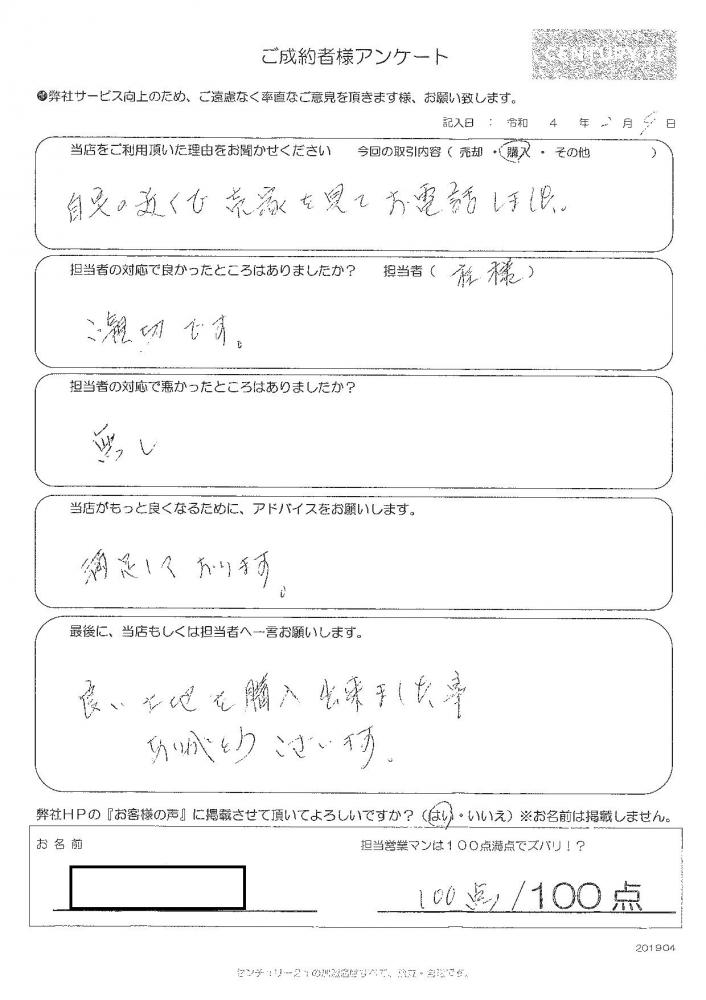 ご成約者様アンケート
CENTURY 21
弊社サービス向上のため、ご遠慮なく率直なご意見を頂きます様、お願い致します。
記入日 : 令和 4 年 2 月 日
当店をご利用頂いた理由をお聞かせください 今回の取引内容 ( 売却 ・ 購入 ・ その他 )
自宅の近くで 売家を見て お電話しました。
担当者の対応で良かったところはありましたか? 担当者 ( 様 )
ご親切です。
担当者の対応で悪かったところはありましたか?
無し
当店がもっと良くなるために、アドバイスをお願いします。
満足しております。
最後に、当店もしくは担当者へ一言お願いします。
良い土地を購入出来ました事
ありがとうございます。
弊社HPの『お客様の声』に掲載させて頂いてよろしいですか? (はい・いいえ) ※お名前は掲載しません。
お名前
担当営業マンは100点満点でズバリ!?
100点 /100点
201904
センチュリー21の加盟店はすべて、独立・自営です。